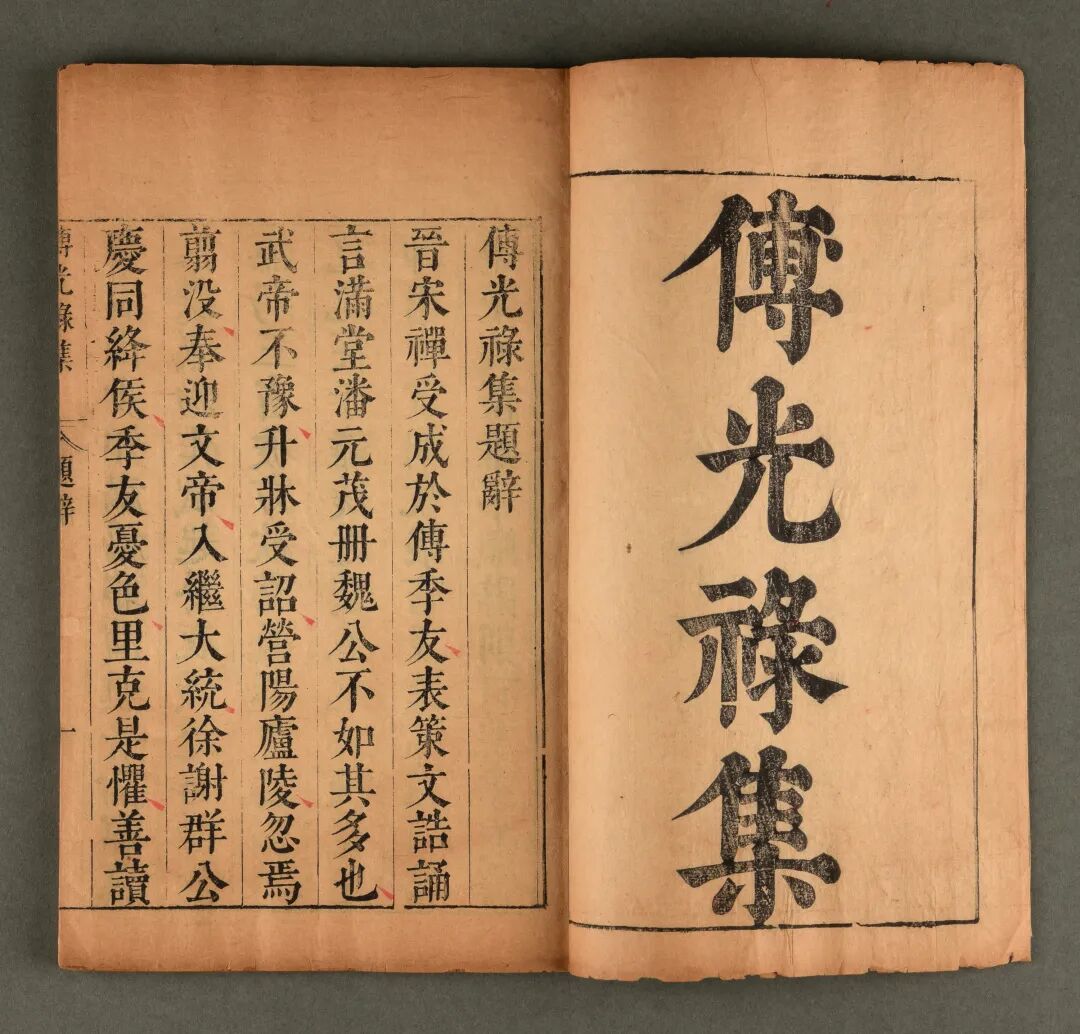 傅光祿集
傅光祿集題辭
晉宋禪受成於傅季友表策文誥誦
言滿堂潘元茂冊魏公不如其多也
武帝不豫升牀受詔營陽廬陵忽焉
翦没奉迎文帝入繼大統徐謝群公
慶同絳侯季友憂色里克是懼善讀
傅光祿集 題辭 一